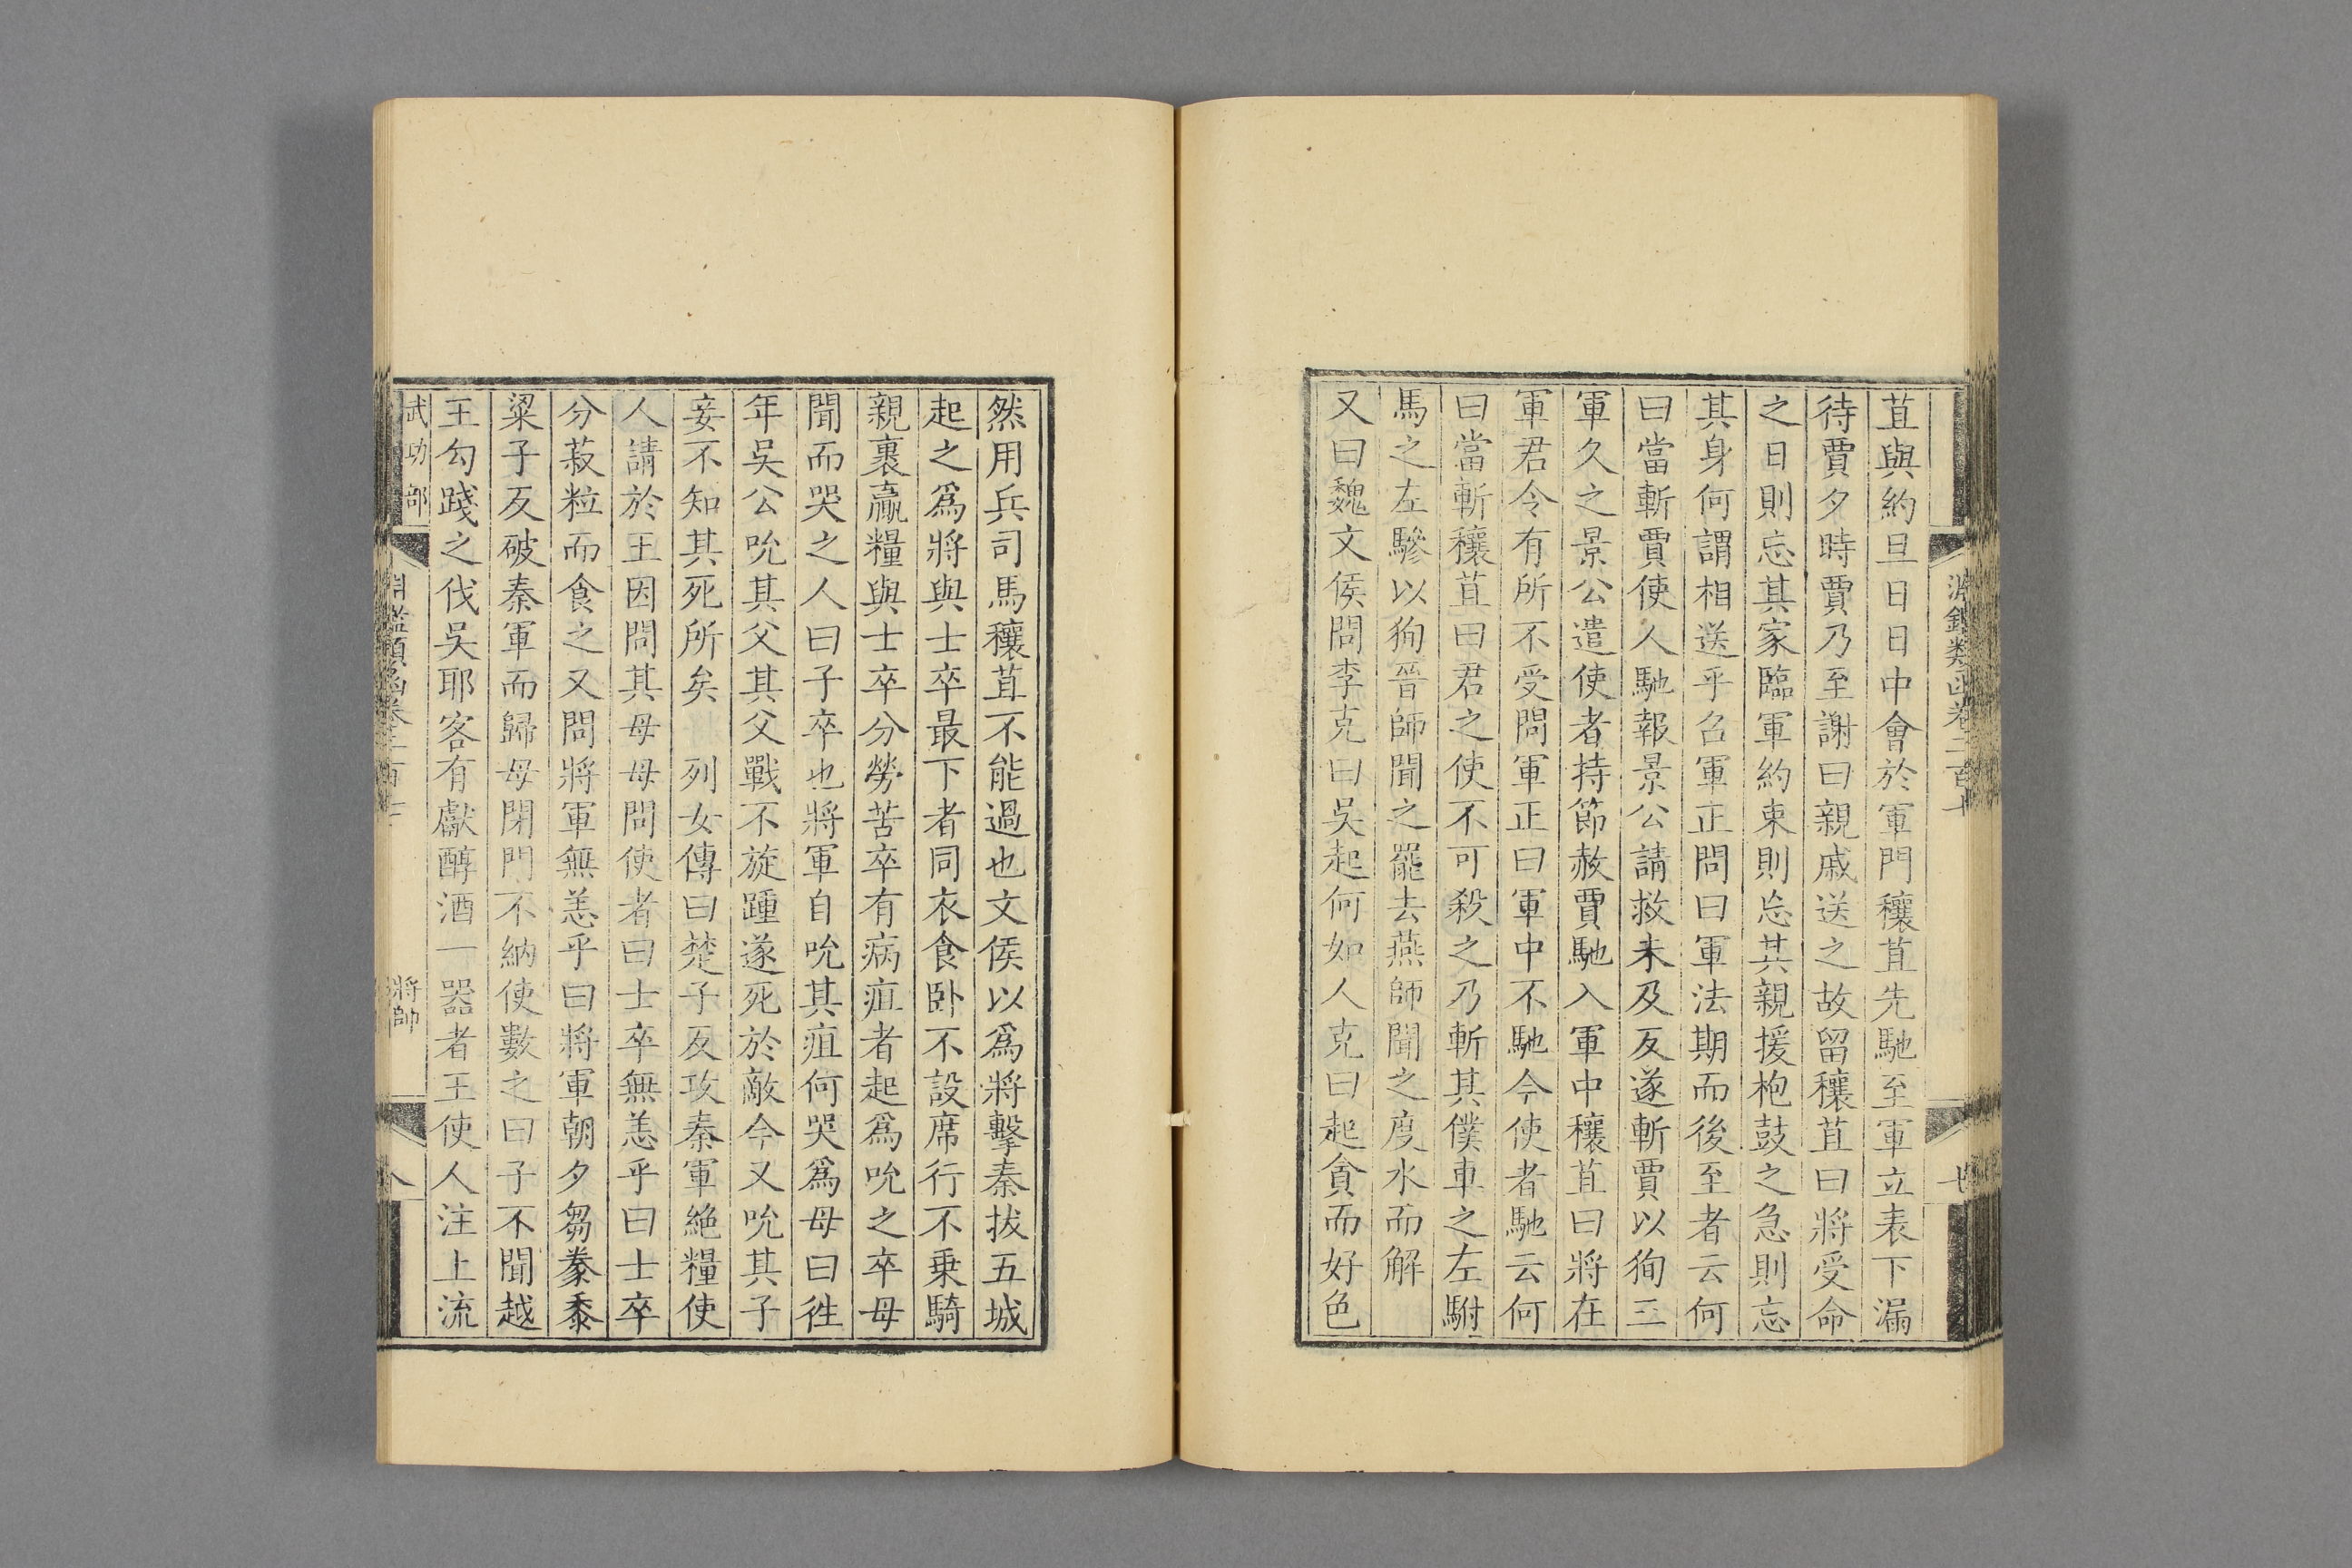 苴與約旦日日中會於軍門穰苴先馳至軍立表下漏
待賈夕時賈乃至謝曰親戚送之故留穰苴曰將受命
之日則忘其家臨軍約束則忘其親援枹鼓之急則忘
其身何謂相送乎召軍正問曰軍法期而後至者云何
曰當斬賈使人馳報景公請救未及反遂斬賈以狥三
軍久之景公遣使者持節赦賈馳入軍中穰苴曰將在
軍君令有所不受問軍正曰軍中不馳今使者馳云何
曰當斬穰苴曰君之使不可殺之乃斬其僕車之左駙
馬之左驂以狥晉師聞之罷去燕師聞之度水而解
又曰魏文侯問李克曰吳起何如人克曰起貪而好色
然用兵司馬穰苴不能過也文侯以爲將擊秦拔五城
起之爲將與士卒最下者同衣食卧不設席行不乗騎
親裹贏糧與士卒分勞苦卒有病疽者起爲吮之卒母
聞而哭之人曰子卒也將軍自吮其疽何哭爲母曰徃
年吳公吮其父其父戰不旋踵遂死於敵今又吮其子
妾不知其死所矣 列女傳曰楚子反攻秦軍絶糧使
人請於王因問其母母問使者曰士卒無恙乎曰士卒
分菽粒而食之又問將軍無恙乎曰將軍朝夕芻豢黍
粱子反破秦軍而歸母閉門不納使數之曰子不聞越
王勾踐之伐吳耶客有獻醇酒一器者王使人注上流
武功部
將帥
八